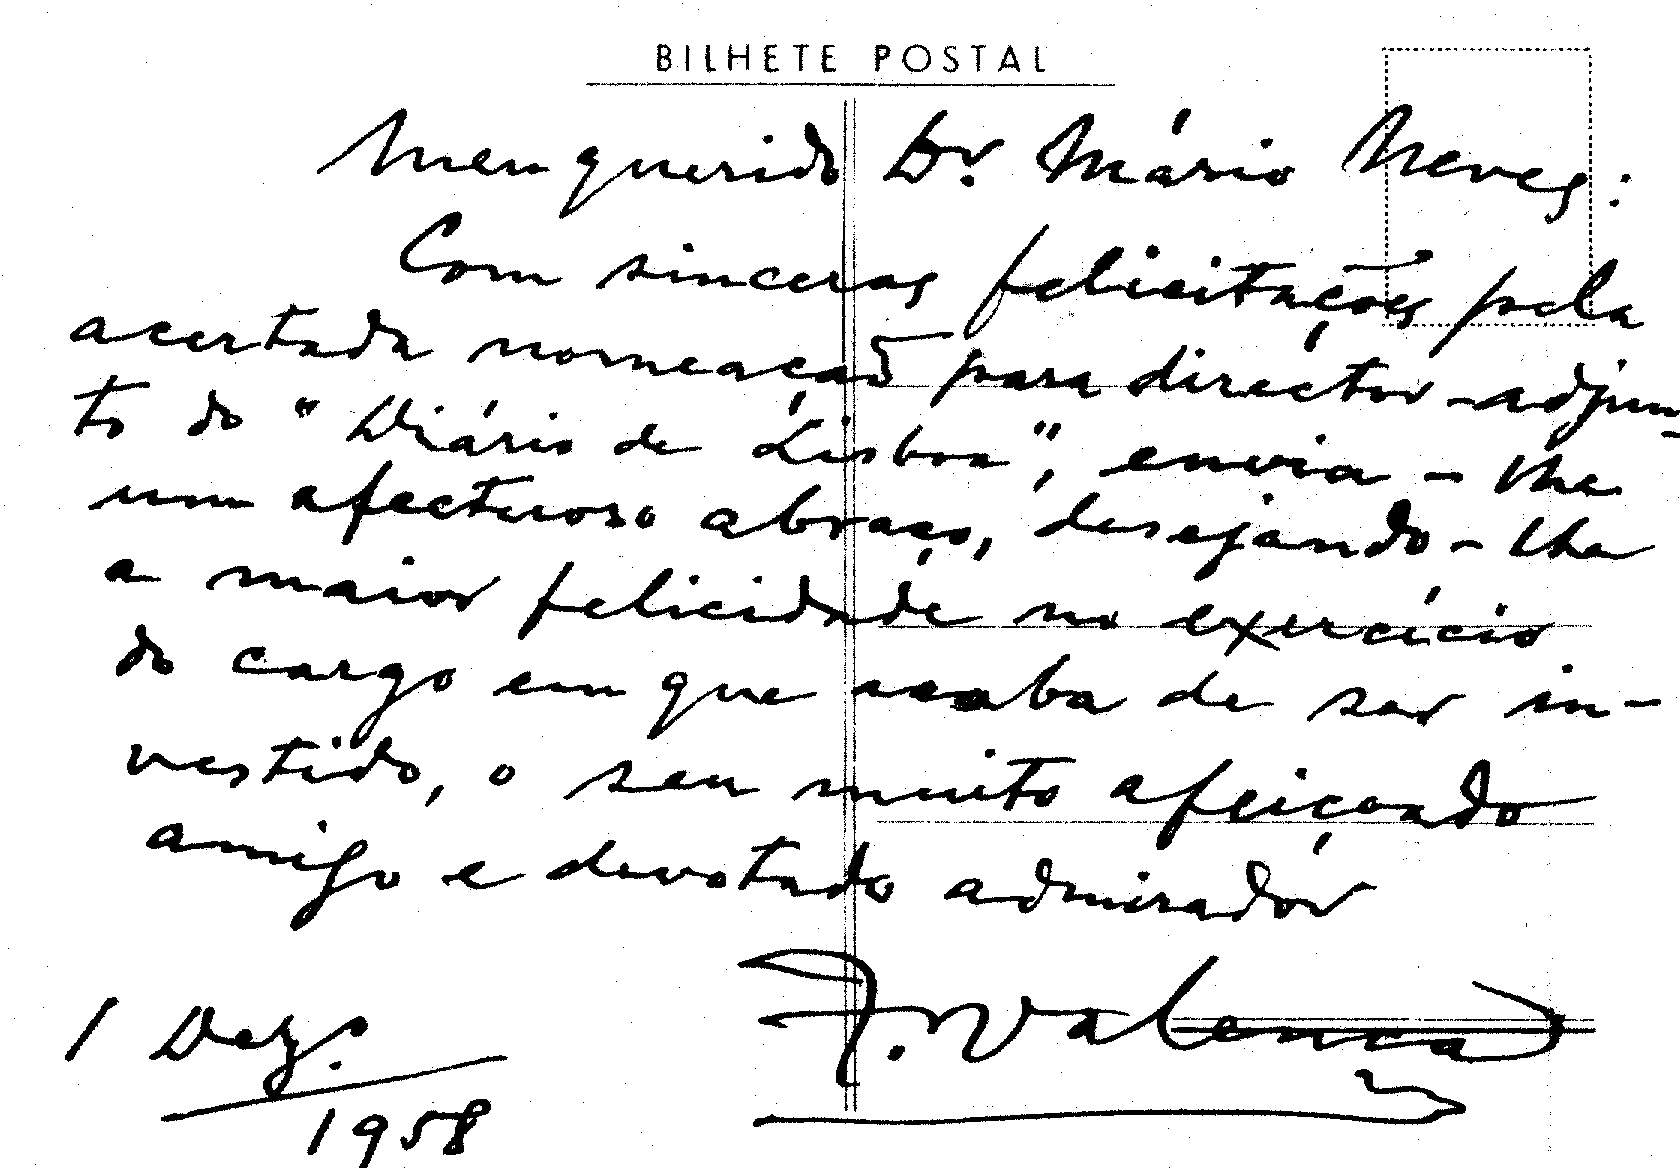 BILHETE POSTAL
Meu querido Dr. Mário Neves:
Com sinceras felicitações pela
acertada nomeação para director-adjun-
to do "Diário de Lisboa", envia-lhe
um afectuoso abraço, desejando-lhe
a maior felicidade no exercício
do cargo em que acaba de ser in-
vestido, o seu muito afeiçoado
amigo e devotado admirador
F. Valença
1 Dez.
1958